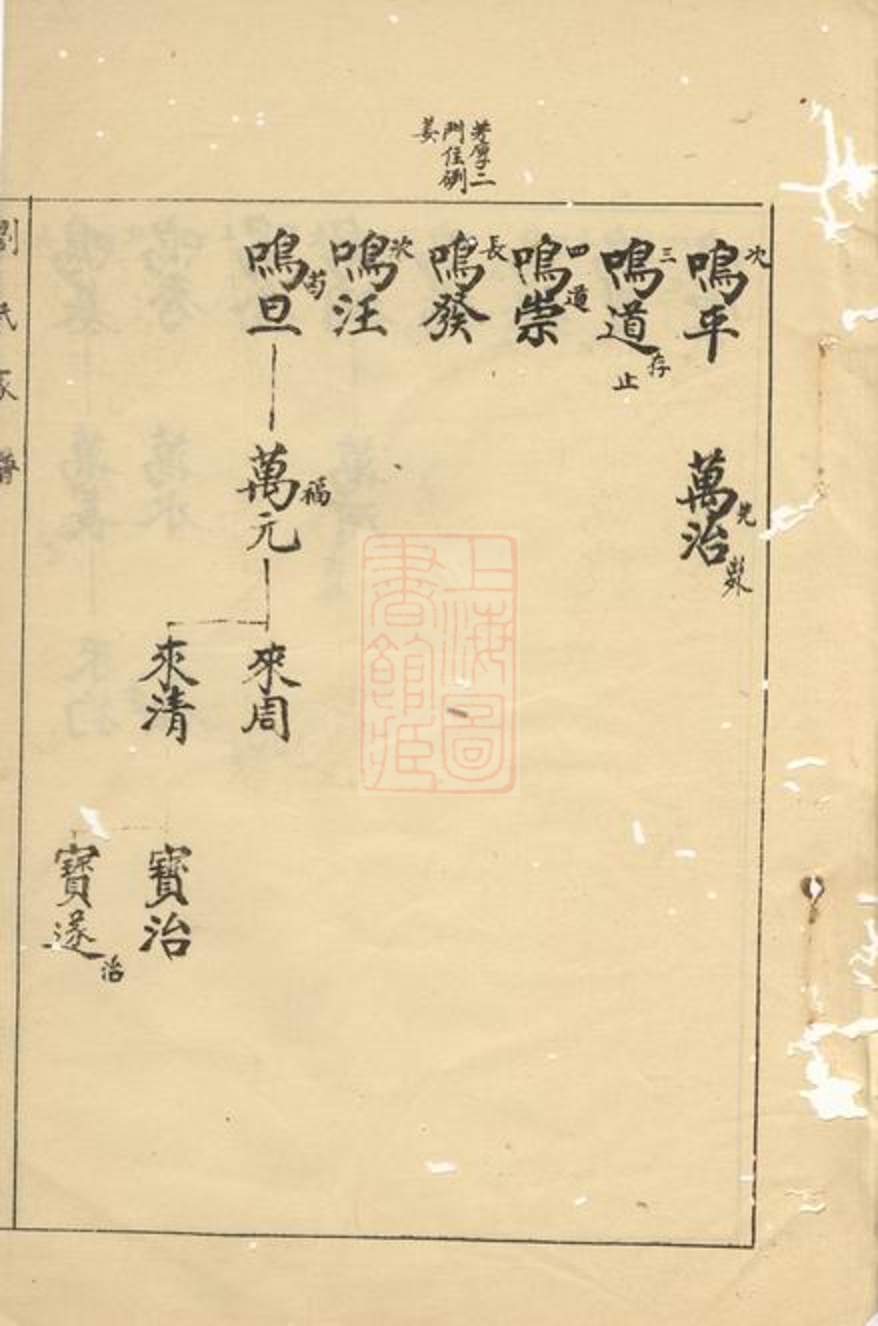 門住例
姜
次
鳴平
萬治
三
鳴道
存
止
四
道
鳴崇
長
鳴發
次
鳴汪
鳴旦
萬元
福
來周
來清
寶治
寶遂
治
劉氏家譜
上海圖書館藏